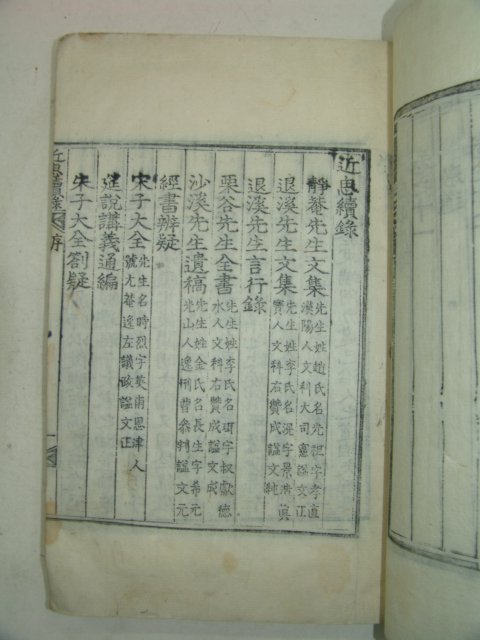 近思續錄
靜菴先生文集 先生姓趙氏名光祖字孝直
漢陽人文科大司憲諡文正
退溪先生文集 先生姓李氏名滉字景浩眞
寶人文科右贊成諡文純
退溪先生言行錄
栗谷先生全書 先生姓李氏名珥字叔獻德
水人文科右贊成諡文成
沙溪先生遺稿 先生姓金氏名長生字希元
光山人逸刑曹參判諡文元
經書辨疑
宋子大全 先生名時烈字英甫恩津人
號尤菴逸左議政諡文正
筵說講義通編
朱子大全箚疑
近思續錄 序